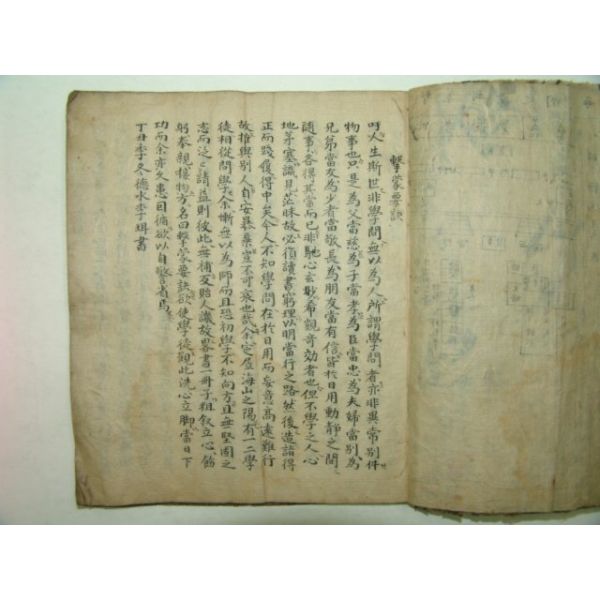 擊蒙要訣
吁人生斯世非學問無以爲人所謂學問者亦非異常別件
物事也只是為父當慈為子當孝為臣當忠為夫婦當別為
兄弟當友為少者當敬長為朋友當有信皆於日用動靜之間
隨事各得其當而已非馳心玄妙希覬奇效者也但不學之人心
地茅塞識見茫昧故必須讀書窮理以明當行之路然後造詣得
正而踐履得中矣今人不知學問在於日用而妄意高遠難行
故推與別人自安暴棄豈不可哀也哉余定居海山之陽有一二學
徒相從問學余慚無以為師而且恐初學不知向方且無堅固之
志而泛泛請益則彼此無補反貽人譏故略書一冊子粗敘立心飭
躬奉親接物方名曰擊蒙要訣欲使學徒觀此洗心立脚當日下
功而余亦久患因循欲以自警省焉
丁丑季冬德水李珥書